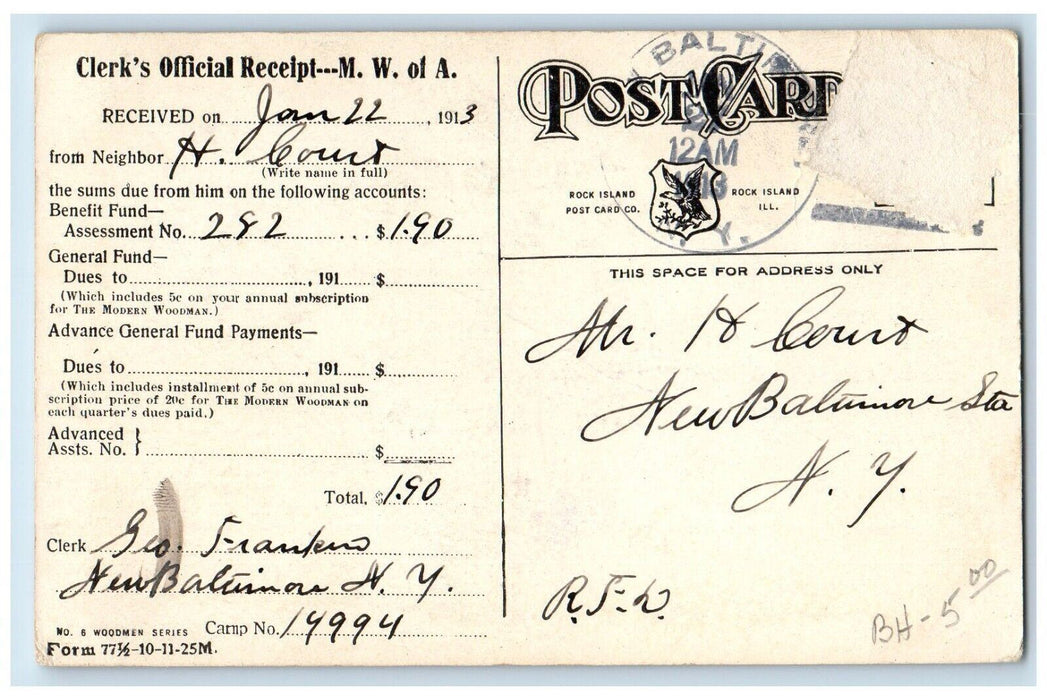 Clerk's Official Receipt---M. W. of A.
RECEIVED on Jan 22, 1913
from Neighbor H. Court
(Write name in full)
the sums due from him on the following accounts:
Benefit Fund—
Assessment No. 282 ... $1.90
General Fund—
Dues to , 191 $
(Which includes 5c on your annual subscription
for THE MODERN WOODMAN.)
Advance General Fund Payments—
Dues to , 191 $
(Which includes installment of 5c on annual sub-
scription price of 20c for THE MODERN WOODMAN on
each quarter's dues paid.)
Advanced
Assts. No. } $
Total, $1.90
Clerk Geo. Franklin
New Baltimore N. Y.
NO. 6 WOODMEN SERIES Camp No. 14994
Form 77½-10-11-25M.
POST CARD
BALTIM
12AM
1913
. Y.
ROCK ISLAND
POST CARD CO.
ROCK ISLAND
ILL.
THIS SPACE FOR ADDRESS ONLY
Mr. H Court
New Baltimore Sta
N. Y.
R.F.D
BH-5 00